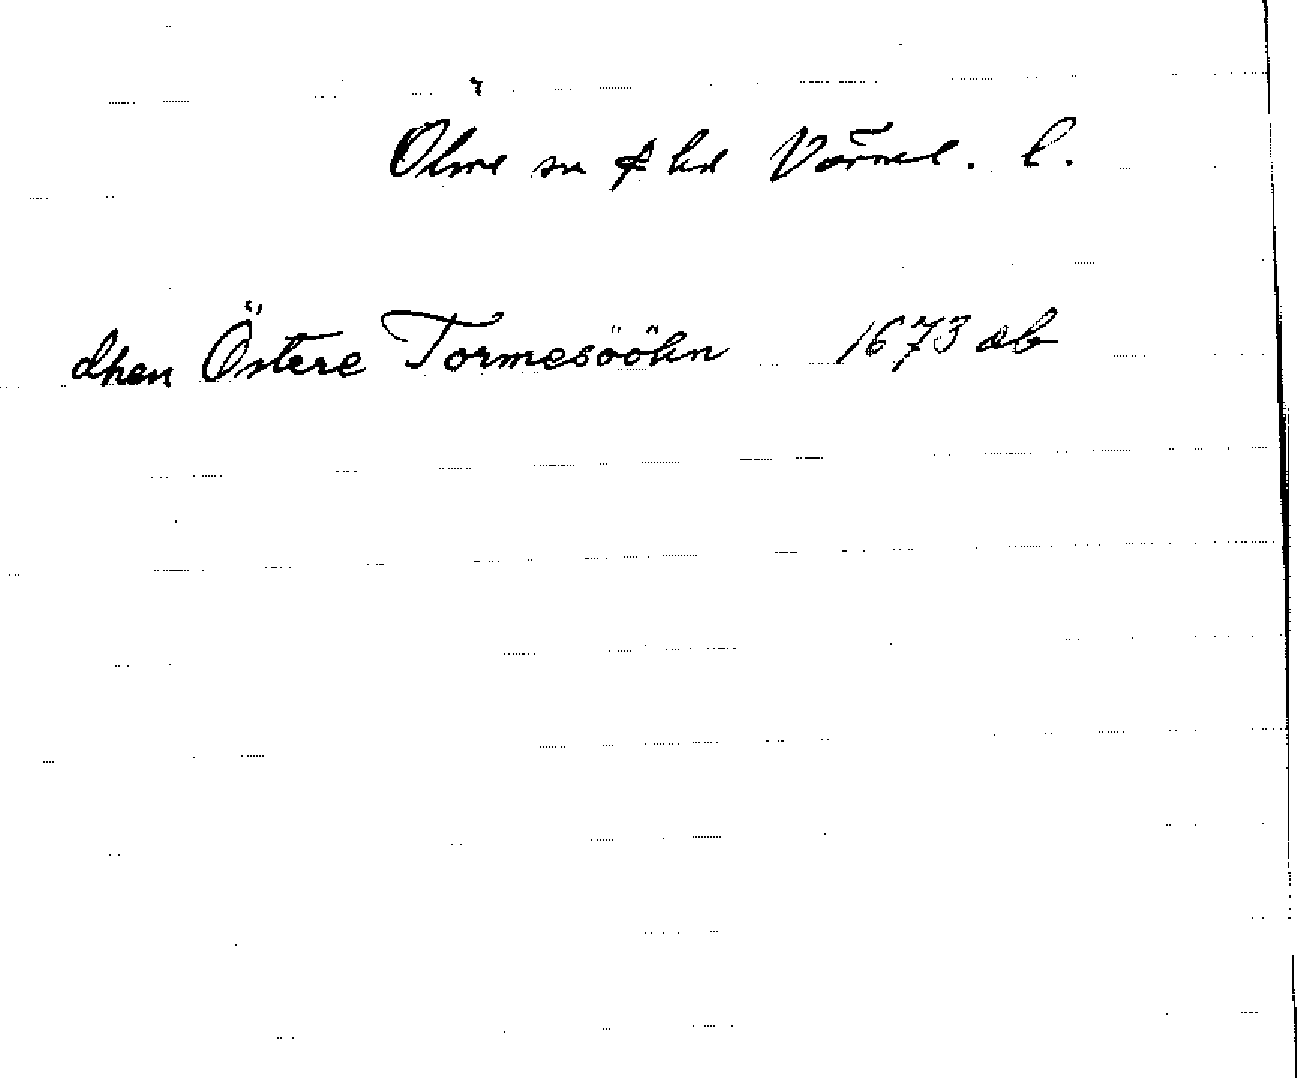 Ölme sn & hd Värml. l.
dhen Östere Tormesööhn 1673 ab